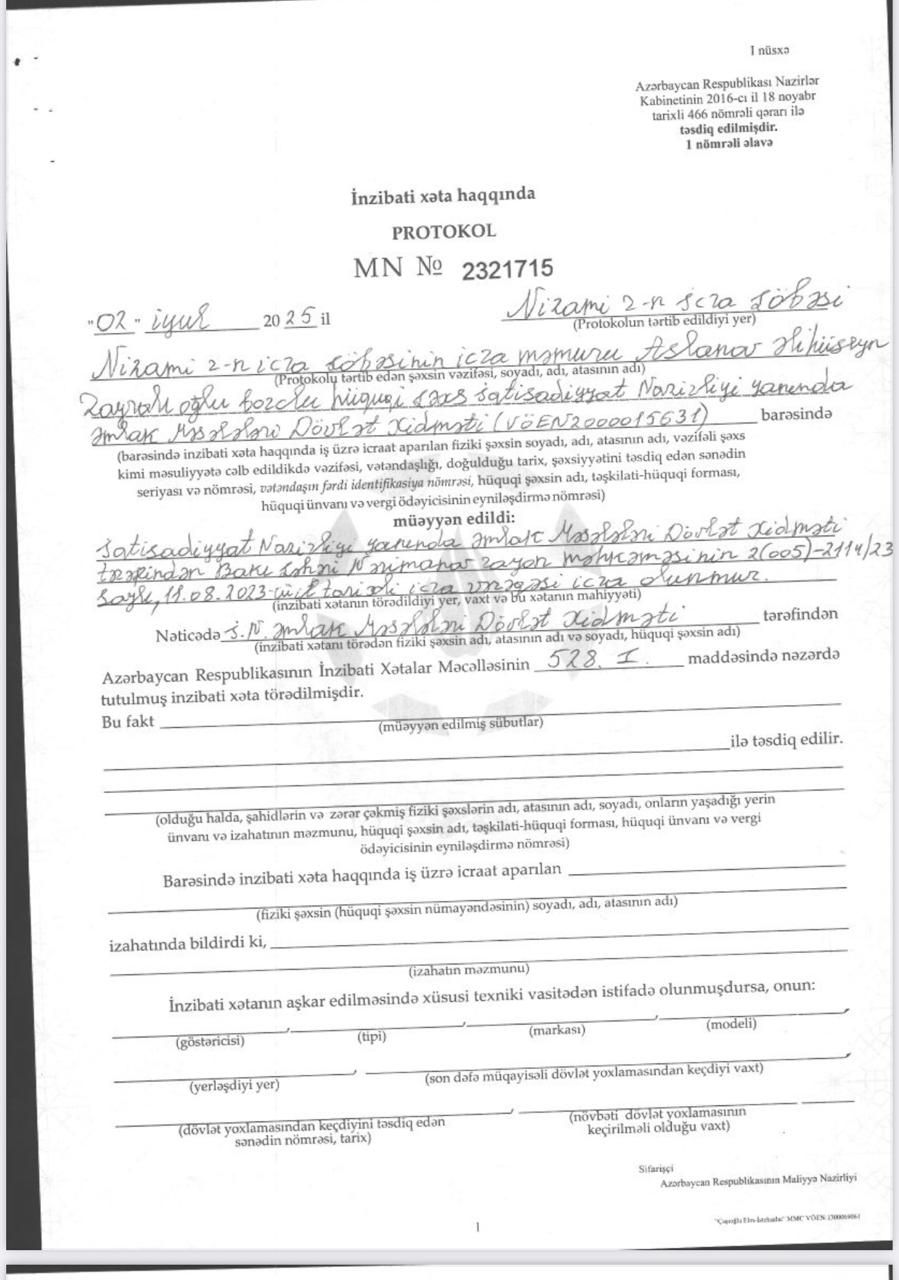 I nüsxə
Azərbaycan Respublikası Nazirlər
Kabinetinin 2016-cı il 18 noyabr
tarixli 466 nömrəli qərarı ilə
təsdiq edilmişdir.
1 nömrəli əlavə
İnzibati xəta haqqında
PROTOKOL
MN № 2321715
"02" iyul 2025 il
Nizami 2-n İcra Şöbəsi
(Protokolun tərtib edildiyi yer)
Nizami 2-n icra şöbəsinin icra məmuru Aslanov Əlihüseyn
(Protokolu tərtib edən şəxsin vəzifəsi, soyadı, adı, atasının adı)
oğlu borclu hüquqi şəxs İqtisadiyyat Nazirliyi yanında
Əmlak Məsələləri Dövlət Xidməti (VÖEN2000015631) barəsində
(barəsində inzibati xəta haqqında iş üzrə icraat aparılan fiziki şəxsin soyadı, adı, atasının adı, vəzifəli şəxs
kimi məsuliyyətə cəlb edildikdə vəzifəsi, vətəndaşlığı, doğulduğu tarix, şəxsiyyətini təsdiq edən sənədin
seriyası və nömrəsi, vətəndaşın fərdi identifikasiya nömrəsi, hüquqi şəxsin adı, təşkilati-hüquqi forması,
hüquqi ünvanı və vergi ödəyicisinin eyniləşdirmə nömrəsi)
müəyyən edildi:
İqtisadiyyat Nazirliyi yanında Əmlak Məsələləri Dövlət Xidməti
tərəfindən Bakı şəhəri Nərimanov rayon məhkəməsinin 2(005)-2114/23
saylı, 11.08.2023-cü il tarixli icra vərəqəsi icra olunmur.
(inzibati xətanın törədildiyi yer, vaxt və bu xətanın mahiyyəti)
Nəticədə İ.N. Əmlak Məsələləri Dövlət Xidməti tərəfindən
(inzibati xətanı törədən fiziki şəxsin adı, atasının adı və soyadı, hüquqi şəxsin adı)
Azərbaycan Respublikasının İnzibati Xətalar Məcəlləsinin 528. I. maddəsində nəzərdə
tutulmuş inzibati xəta törədilmişdir.
Bu fakt
(müəyyən edilmiş sübutlar)
ilə təsdiq edilir.
(olduğu halda, şahidlərin və zərər çəkmiş fiziki şəxslərin adı, atasının adı, soyadı, onların yaşadığı yerin
ünvanı və izahatının məzmunu, hüquqi şəxsin adı, təşkilati-hüquqi forması, hüquqi ünvanı və vergi
ödəyicisinin eyniləşdirmə nömrəsi)
Barəsində inzibati xəta haqqında iş üzrə icraat aparılan
(fiziki şəxsin (hüquqi şəxsin nümayəndəsinin) soyadı, adı, atasının adı)
izahatında bildirdi ki,
(izahatın məzmunu)
İnzibati xətanın aşkar edilməsində xüsusi texniki vasitədən istifadə olunmuşdursa, onun:
(göstəricisi) (tipi) (markası) (modeli)
(yerləşdiyi yer) (son dəfə müqayisəli dövlət yoxlamasından keçdiyi vaxt)
(dövlət yoxlamasından keçdiyini təsdiq edən (növbəti dövlət yoxlamasının
sənədin nömrəsi, tarix) keçirilməli olduğu vaxt)
Sifarişçi
Azərbaycan Respublikasının Maliyyə Nazirliyi
1